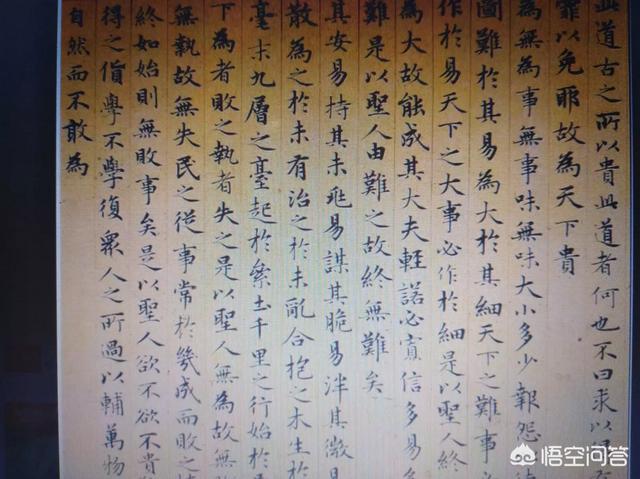 此道古之所以貴此道者何也不曰求以得
罪以免耶故為天下貴
為無為事無事味無味大小多少報怨
圖難於其易為大於其細天下之難事
作於易天下之大事必作於細是以聖人終
為大故能成其大夫輕諾必寡信多易
難是以聖人由難之故終無難矣
其安易持其未兆易謀其脆易泮其微易
散為之於未有治之於未亂合抱之木生於
毫末九層之臺起於絫土千里之行始於
下為者敗之執者失之是以聖人無為故無
無執故無失民之從事常於幾成而敗之
終如始則無敗事矣是以聖人欲不欲不貴
得之貨學不學復眾人之所過以輔萬物
自然而不敢為
悟空问答